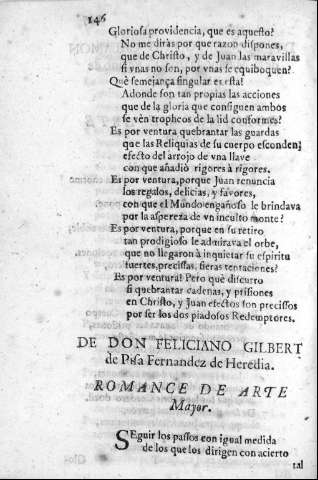 146
Gloriosa providencia, que es aquesto?
No me diràs por que razon dispones,
que de Christo, y de Juan las maravillas
si vnas no son, por vnas se equiboquen?
Què semejança singular es esta!
Adonde son tan propias las acciones
que de la gloria que consiguen ambos
se vèn tropheos de la lid couformes?
Es por ventura quebrantar las guardas
que las Reliquias de su cuerpo esconden;
efecto del arrojo de vna llave
con que añadiò rigores à rigores.
Es por ventura, porque Juan renuncia
los regalos, delicias, y favores,
con que el Mundo engañoso le brindava
por la aspereza de vn inculto monte?
Es por ventura, porque en su retiro
tan prodigioso le admirava el orbe,
que no llegaron à inquietar su espiritu
fuertes, precissas, fieras tentaciones?
Es por ventura! Pero què discurro
si quebrantar cadenas, y prisiones
en Christo, y Juan efectos son precissos
por ser los dos piadosos Redemptores.
DE DON FELICIANO GILBERT
de Pisa Fernandez de Heredia.
ROMANCE DE ARTE
Mayor.
SEguir los passos con igual medida
de los que los dirigen con acierto
tal